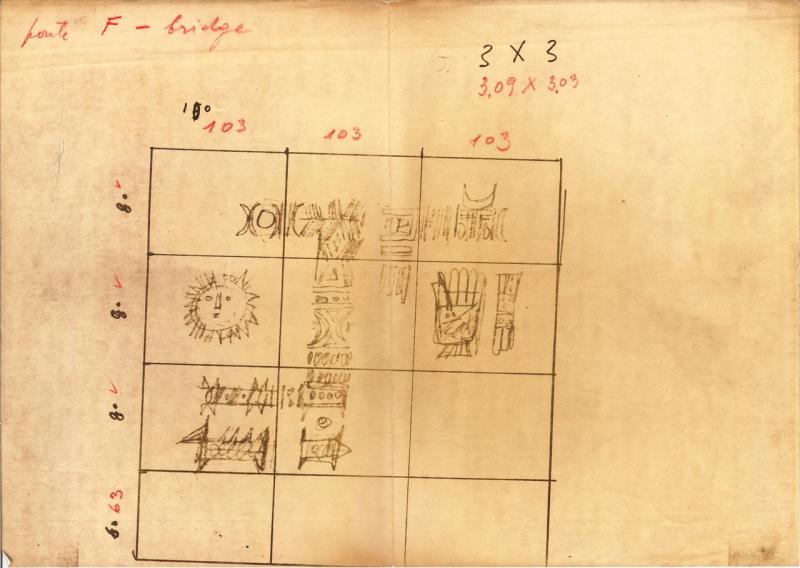 ponte F - bridge
3 X 3
3,09 X 3,03
103 103 103
8.
8.
8.
6.63